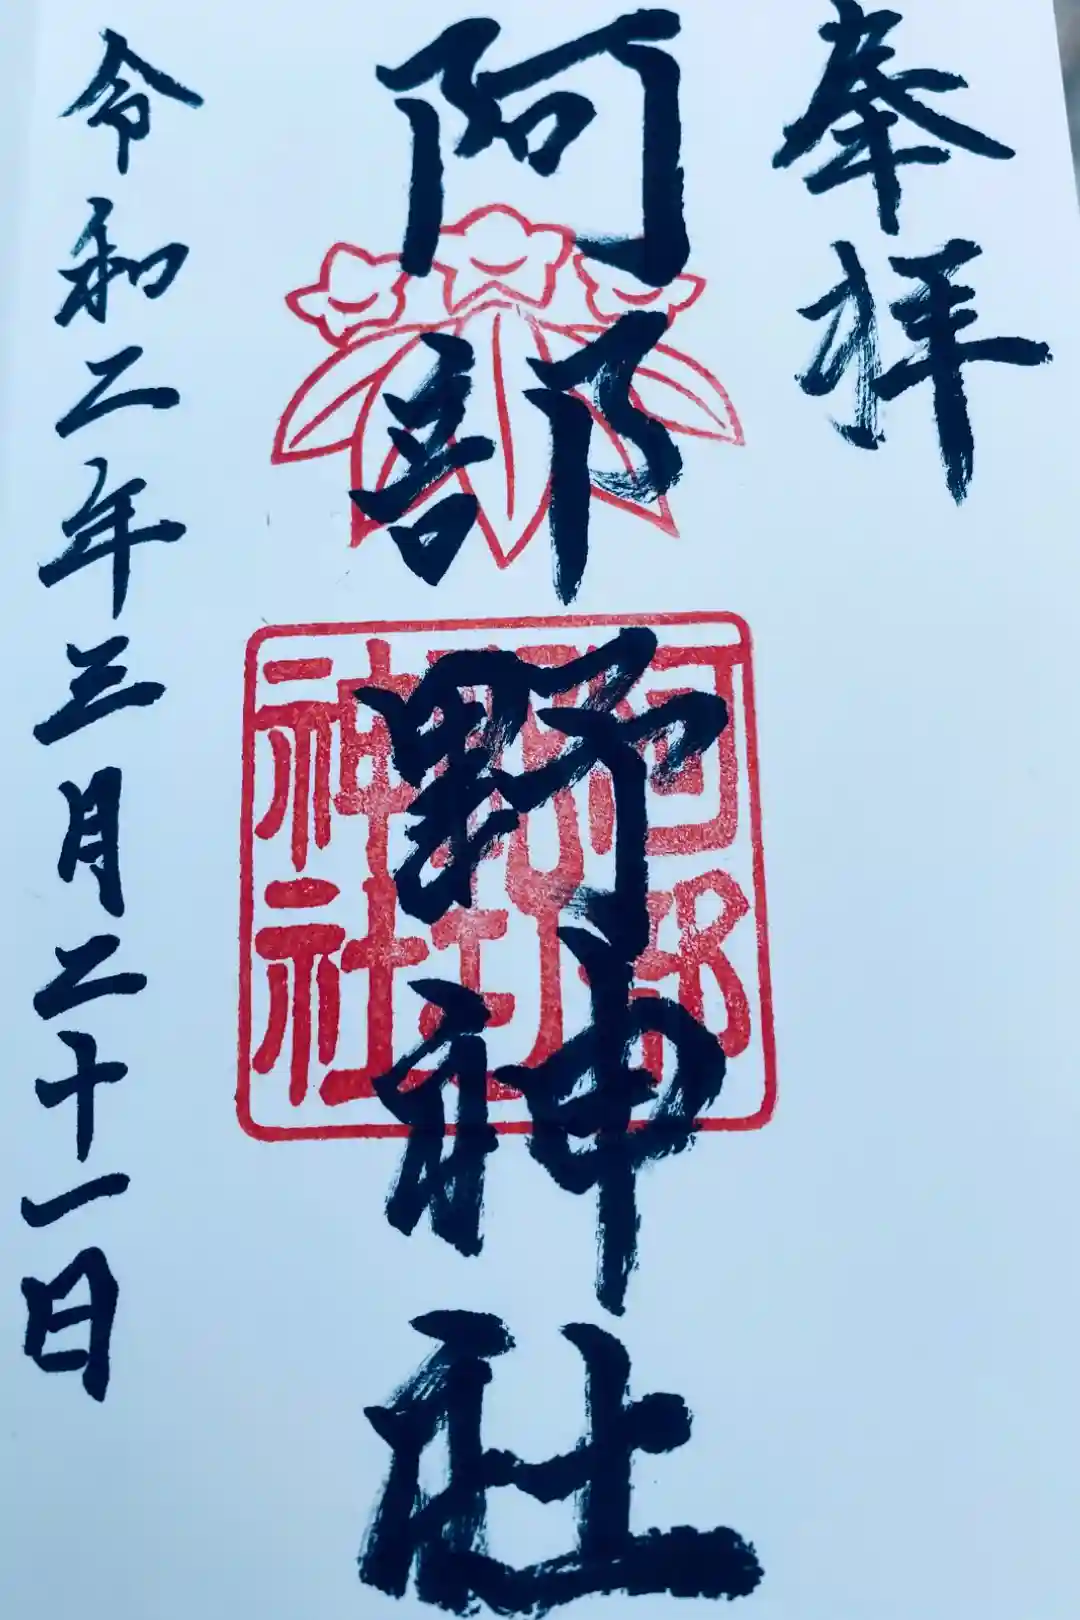 奉拝
阿部野神社
阿部
野神社
令和二年三月二十一日